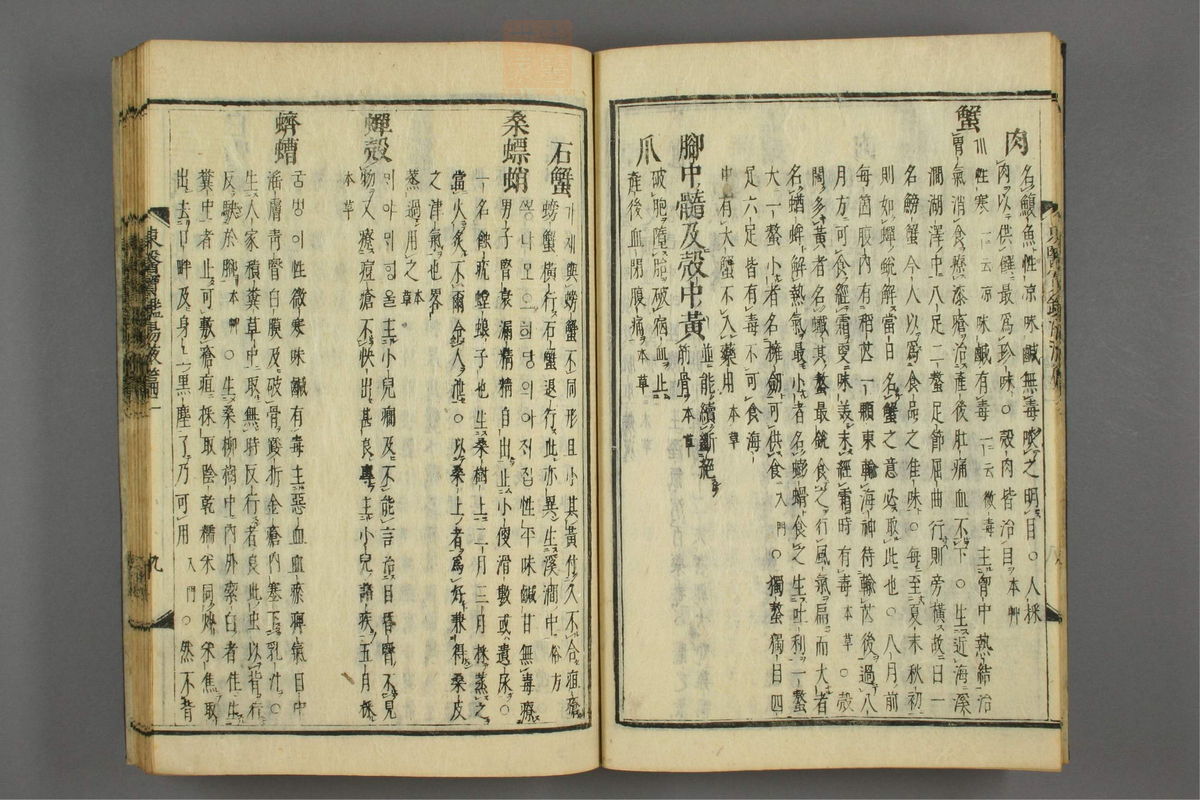 肉 名鰒魚性凉味鹹無毒啖之明目○人採
肉以供饌最爲珍味○殼肉皆治目本艸
蟹 性寒一云凉味鹹有毒一云微毒主胷中熱結治
胃氣消食療漆瘡治產後肚痛血不下○生近海溪
澗湖澤中八足二螯足節屈曲行則旁橫故曰一
名螃蟹今人以爲食品之佳味○每至夏末秋初
則如蟬蛻解當日名蟹之意必取此也○八月前
每箇腹內有稻芒一顆東輸海神待輸芒後過八
月方可食經霜更味美未經霜時有毒本草○殼
闊多黃者名蠘其螯最銳食之行風氣扁而大者
名蝤蛑解熱氣最小者名蟛蜞食之生吐利一螯
大一螯小者名擁劒可供食入門○獨螯獨目四
足六足皆有毒不可食海
中有大蟹不入藥用本草
脚中髓及殼中黃 並能續斷絶筋骨本草
爪 破胞墮胎破宿血止
產後血閉腹痛本草
石蟹 가재與螃蟹不同形且小其黃付久不合疽瘡
螃蟹橫行石蟹退行此亦異生溪澗中俗方
桑螵蛸 뽕나모우희당의아직집性平味鹹甘無毒療
男子腎衰漏精精自出止小便滑數或遺尿○
一名蝕疣螳螂子也生桑樹上二月三月採蒸之
當火炙不爾令人泄○以桑上者爲好兼得桑皮
之津氣也
蒸過用之本草
蟬殼 ᄆᆡ야ᄆᆡ헝울主小兒癎及不能言治目昏瞖不見
物又療痘瘡不快出甚良專主小兒諸疾五月採
本草
蠐螬 굼벙이性微寒味鹹有毒主惡血血瘀痺氣目中
滛膚靑瞖白膜及破骨踒折金瘡內塞下乳汁○
生人家積糞草中取無時反行者良此虫以背行
反駃於脚本艸○生桑柳樹中內外索白者佳生
糞中者止可敷瘡疽採取陰乾糯米同炒米焦取
出去口畔及身上黑塵了乃可用入門○然不背
東醫寶鑑湯液篇
九